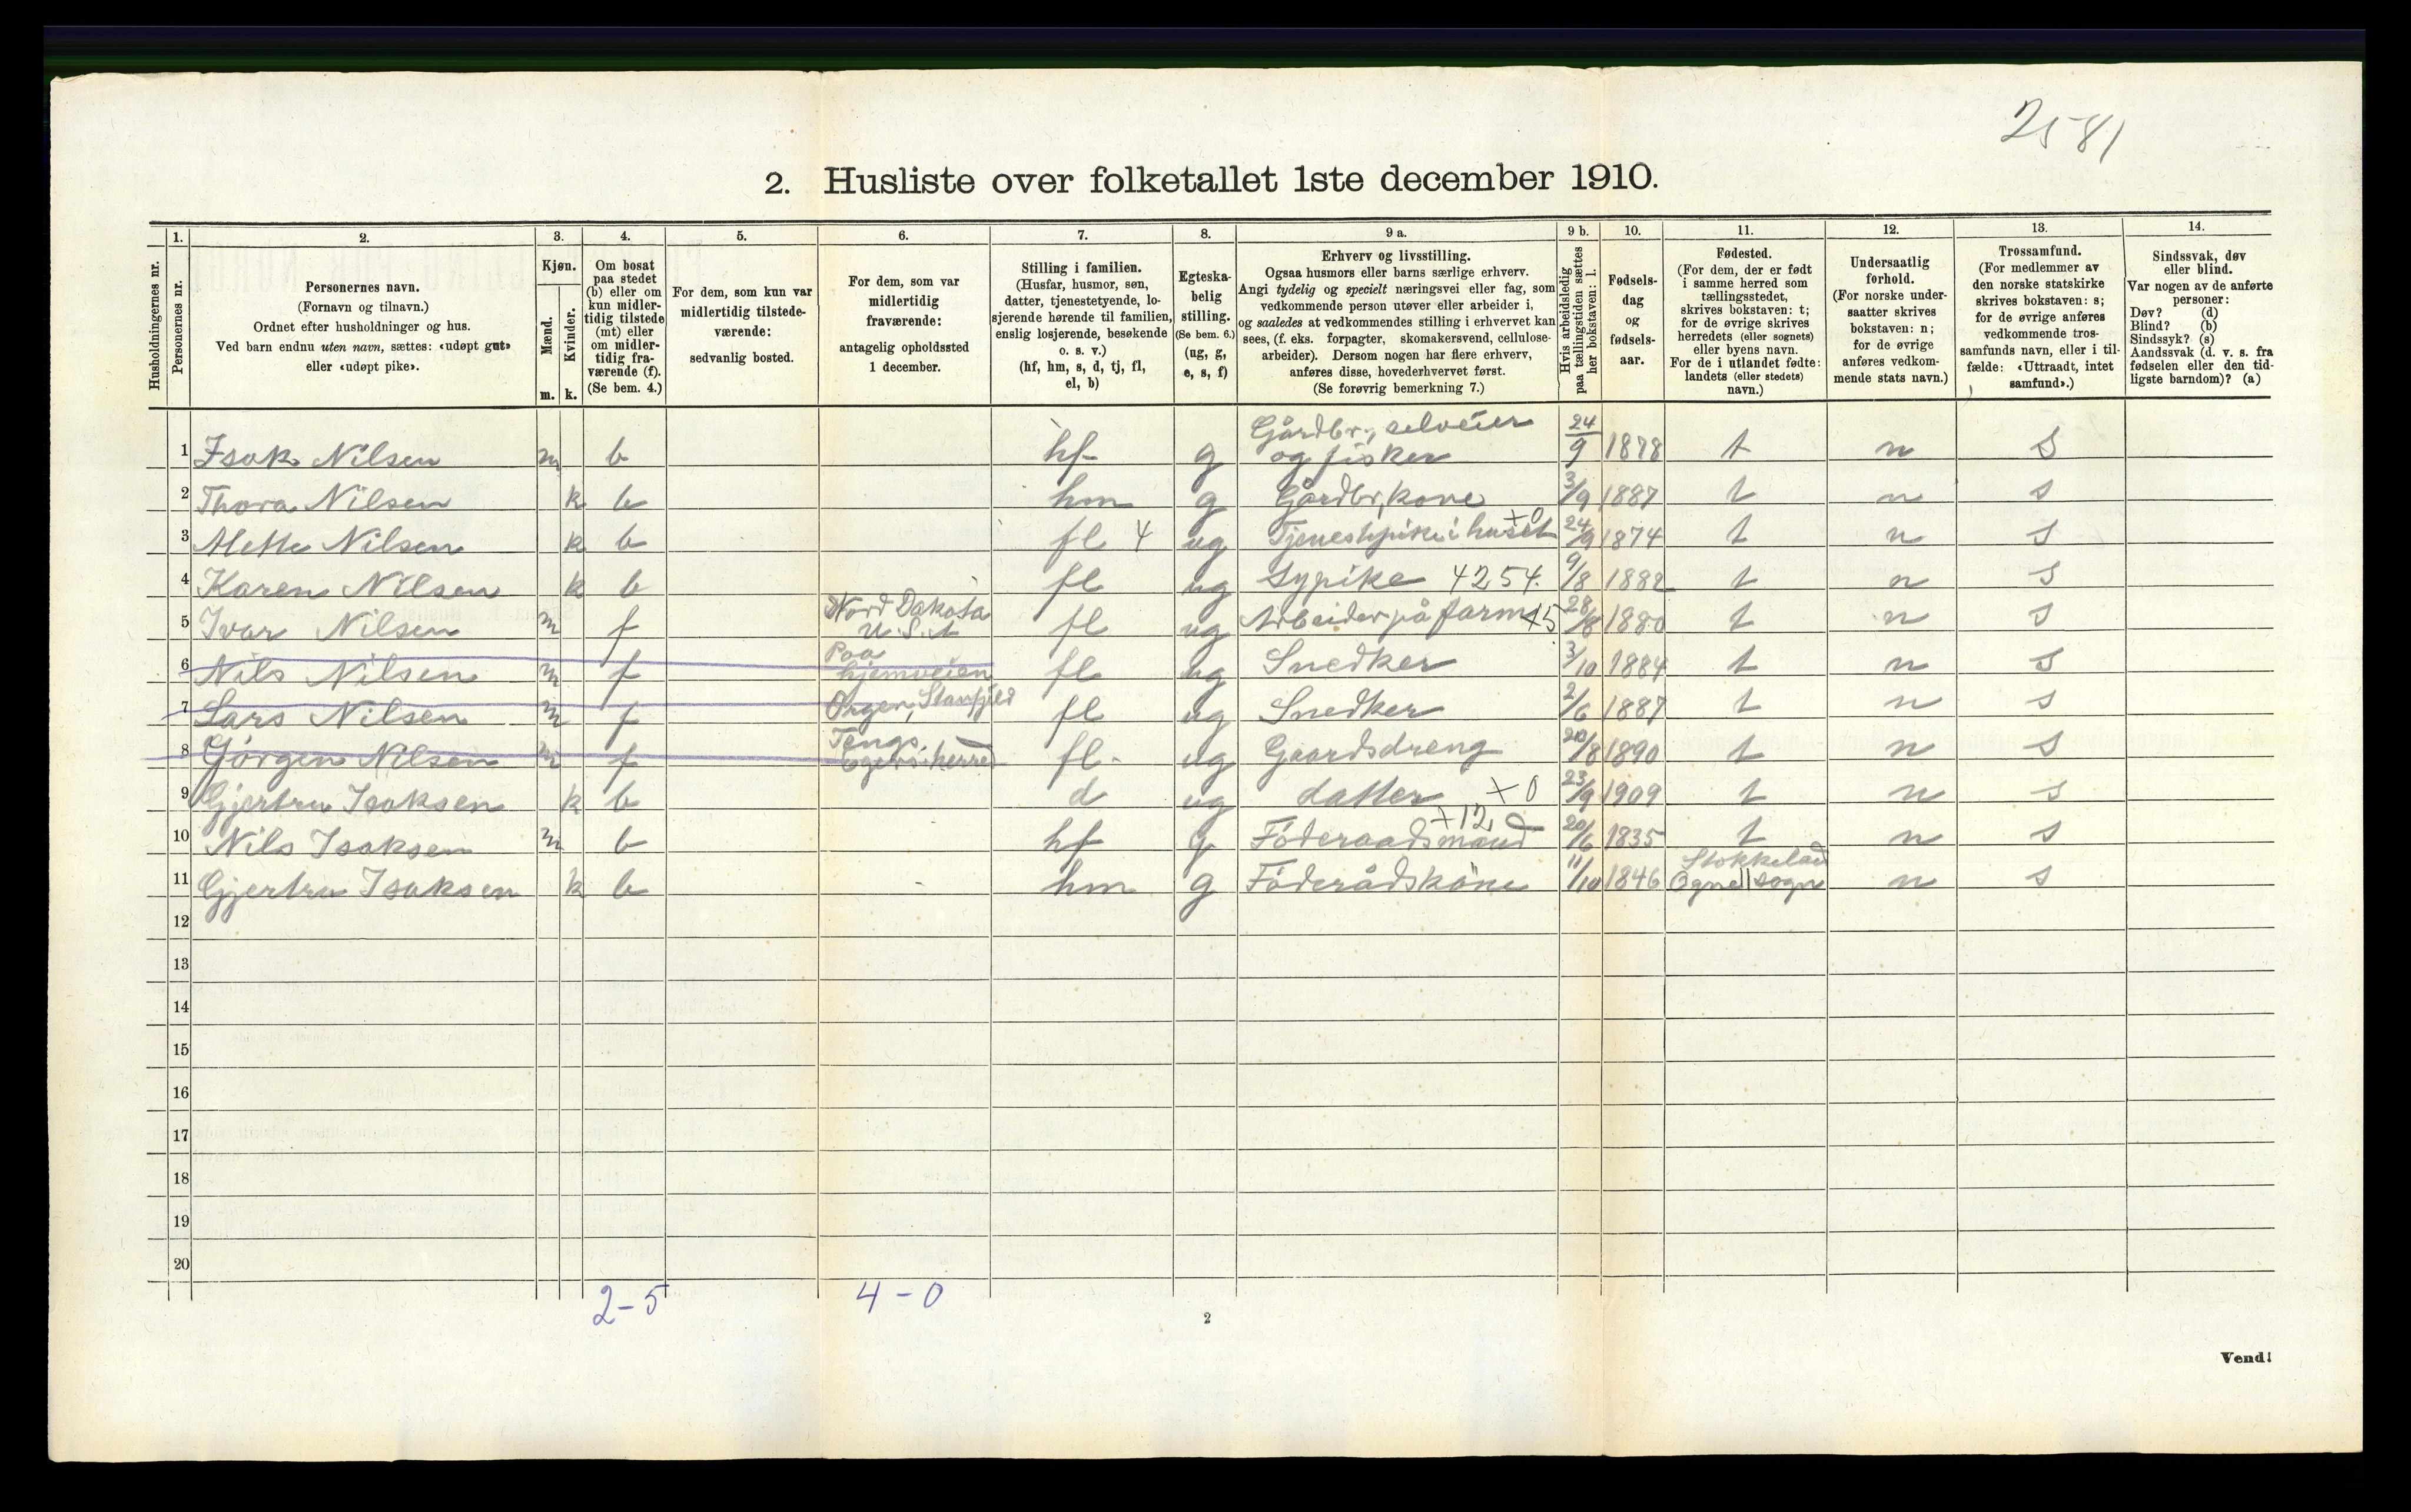 2581
2. Husliste over folketallet 1ste december 1910.
Husholdningernes nr.
1.
Personernes nr.
2.
Personernes navn.
(Fornavn og tilnavn.)
Ordnet efter husholdninger og hus.
Ved barn endnu uten navn, sættes: «udøpt gut»
eller «udøpt pike».
3.
Kjøn.
Mænd.
Kvinder.
m. k.
4.
Om bosat
paa stedet
(b) eller om
kun midler-
tidig tilstede
(mt) eller
om midler-
tidig fra-
værende (f).
(Se bem. 4.)
5.
For dem, som kun var
midlertidig tilstede-
værende:
sedvanlig bosted.
6.
For dem, som var
midlertidig
fraværende:
antagelig opholdssted
1 december.
7.
Stilling i familien.
(Husfar, husmor, søn,
datter, tjenestetyende, lo-
sjerende hørende til familien,
enslig losjerende, besøkende
o. s. v.)
(hf, hm, s, d, tj, fl,
el, b)
8.
Egteska-
belig
stilling.
(Se bem. 6.)
(ug, g,
e, s, f)
9 a.
Erhverv og livsstilling.
Ogsaa husmors eller barns særlige erhverv.
Angi tydelig og specielt næringsvei eller fag, som
vedkommende person utøver eller arbeider i,
og saaledes at vedkommendes stilling i erhvervet kan
sees, (f. eks. forpagter, skomakersvend, cellulose-
arbeider). Dersom nogen har flere erhverv,
anføres disse, hovederhvervet først.
(Se forøvrig bemerkning 7.)
9 b.
Hvis arbeidsledig
paa tællingstiden sættes
her bokstaven: l.
10.
Fødsels-
dag
og
fødsels-
aar.
11.
Fødested.
(For dem, der er født
i samme herred som
tællingsstedet,
skrives bokstaven: t;
for de øvrige skrives
herredets (eller sognets)
eller byens navn.
For de i utlandet fødte:
landets (eller stedets)
navn.)
12.
Undersaatlig
forhold.
(For norske under-
saatter skrives
bokstaven: n;
for de øvrige
anføres vedkom-
mende stats navn.)
13.
Trossamfund.
(For medlemmer av
den norske statskirke
skrives bokstaven: s;
for de øvrige anføres
vedkommende tros-
samfunds navn, eller i til-
fælde: «Uttraadt, intet
samfund».)
14.
Sindssvak, døv
eller blind.
Var nogen av de anførte
personer:
Døv? (d)
Blind? (b)
Sindssyk? (s)
Aandssvak (d. v. s. fra
fødselen eller den tid-
ligste barndom)? (a)
1 Isak Nilsen m b hf g Gårdbr., selveier og fisker 24/9 1878 t n s
2 Thora Nilsen k b hm g Gårdbr, kone 3/9 1887 t n s
3 Mette Nilsen k b fl 4 ug Tjenestpike i huset +0 24/9 1874 t n s
4 Karen Nilsen k b fl ug Sypike 4254. 9/8 1882 t n s
5 Ivar Nilsen m f Nord Dakota U.S.A fl ug Arbeider på farm 45 28/8 1880 t n s
6 Nils Nilsen m f Paa hjemveien fl ug Snedker 3/10 1884 t n s
7 Lars Nilsen m f fl ug Snedker 2/6 1887 t n s
8 Gjørgen Nilsen m f Tengs, Egers. herred fl. ug Gaardsdreng 20/8 1890 t n s
9 Gjertru Isaksen k b d ug datter +0 23/9 1909 t n s
10 Nils Isaksen m b hf g Føderaadsmand +12 20/6 1835 t n s
11 Gjertru Isaksen k b hm g Føderådskone 11/10 1846 Stokkeland Ogne sogn n s
12
13
14
15
16
17
18
19
20
2-5 4-0
2
Vend!